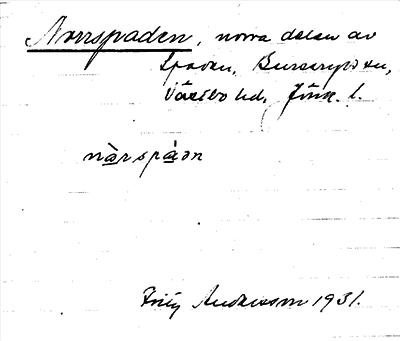 Norrspaden, norra delen av
Spaden, Burseryds sn,
Västbo hd, Jönk. l.
nårspádn
Andersson 1931.